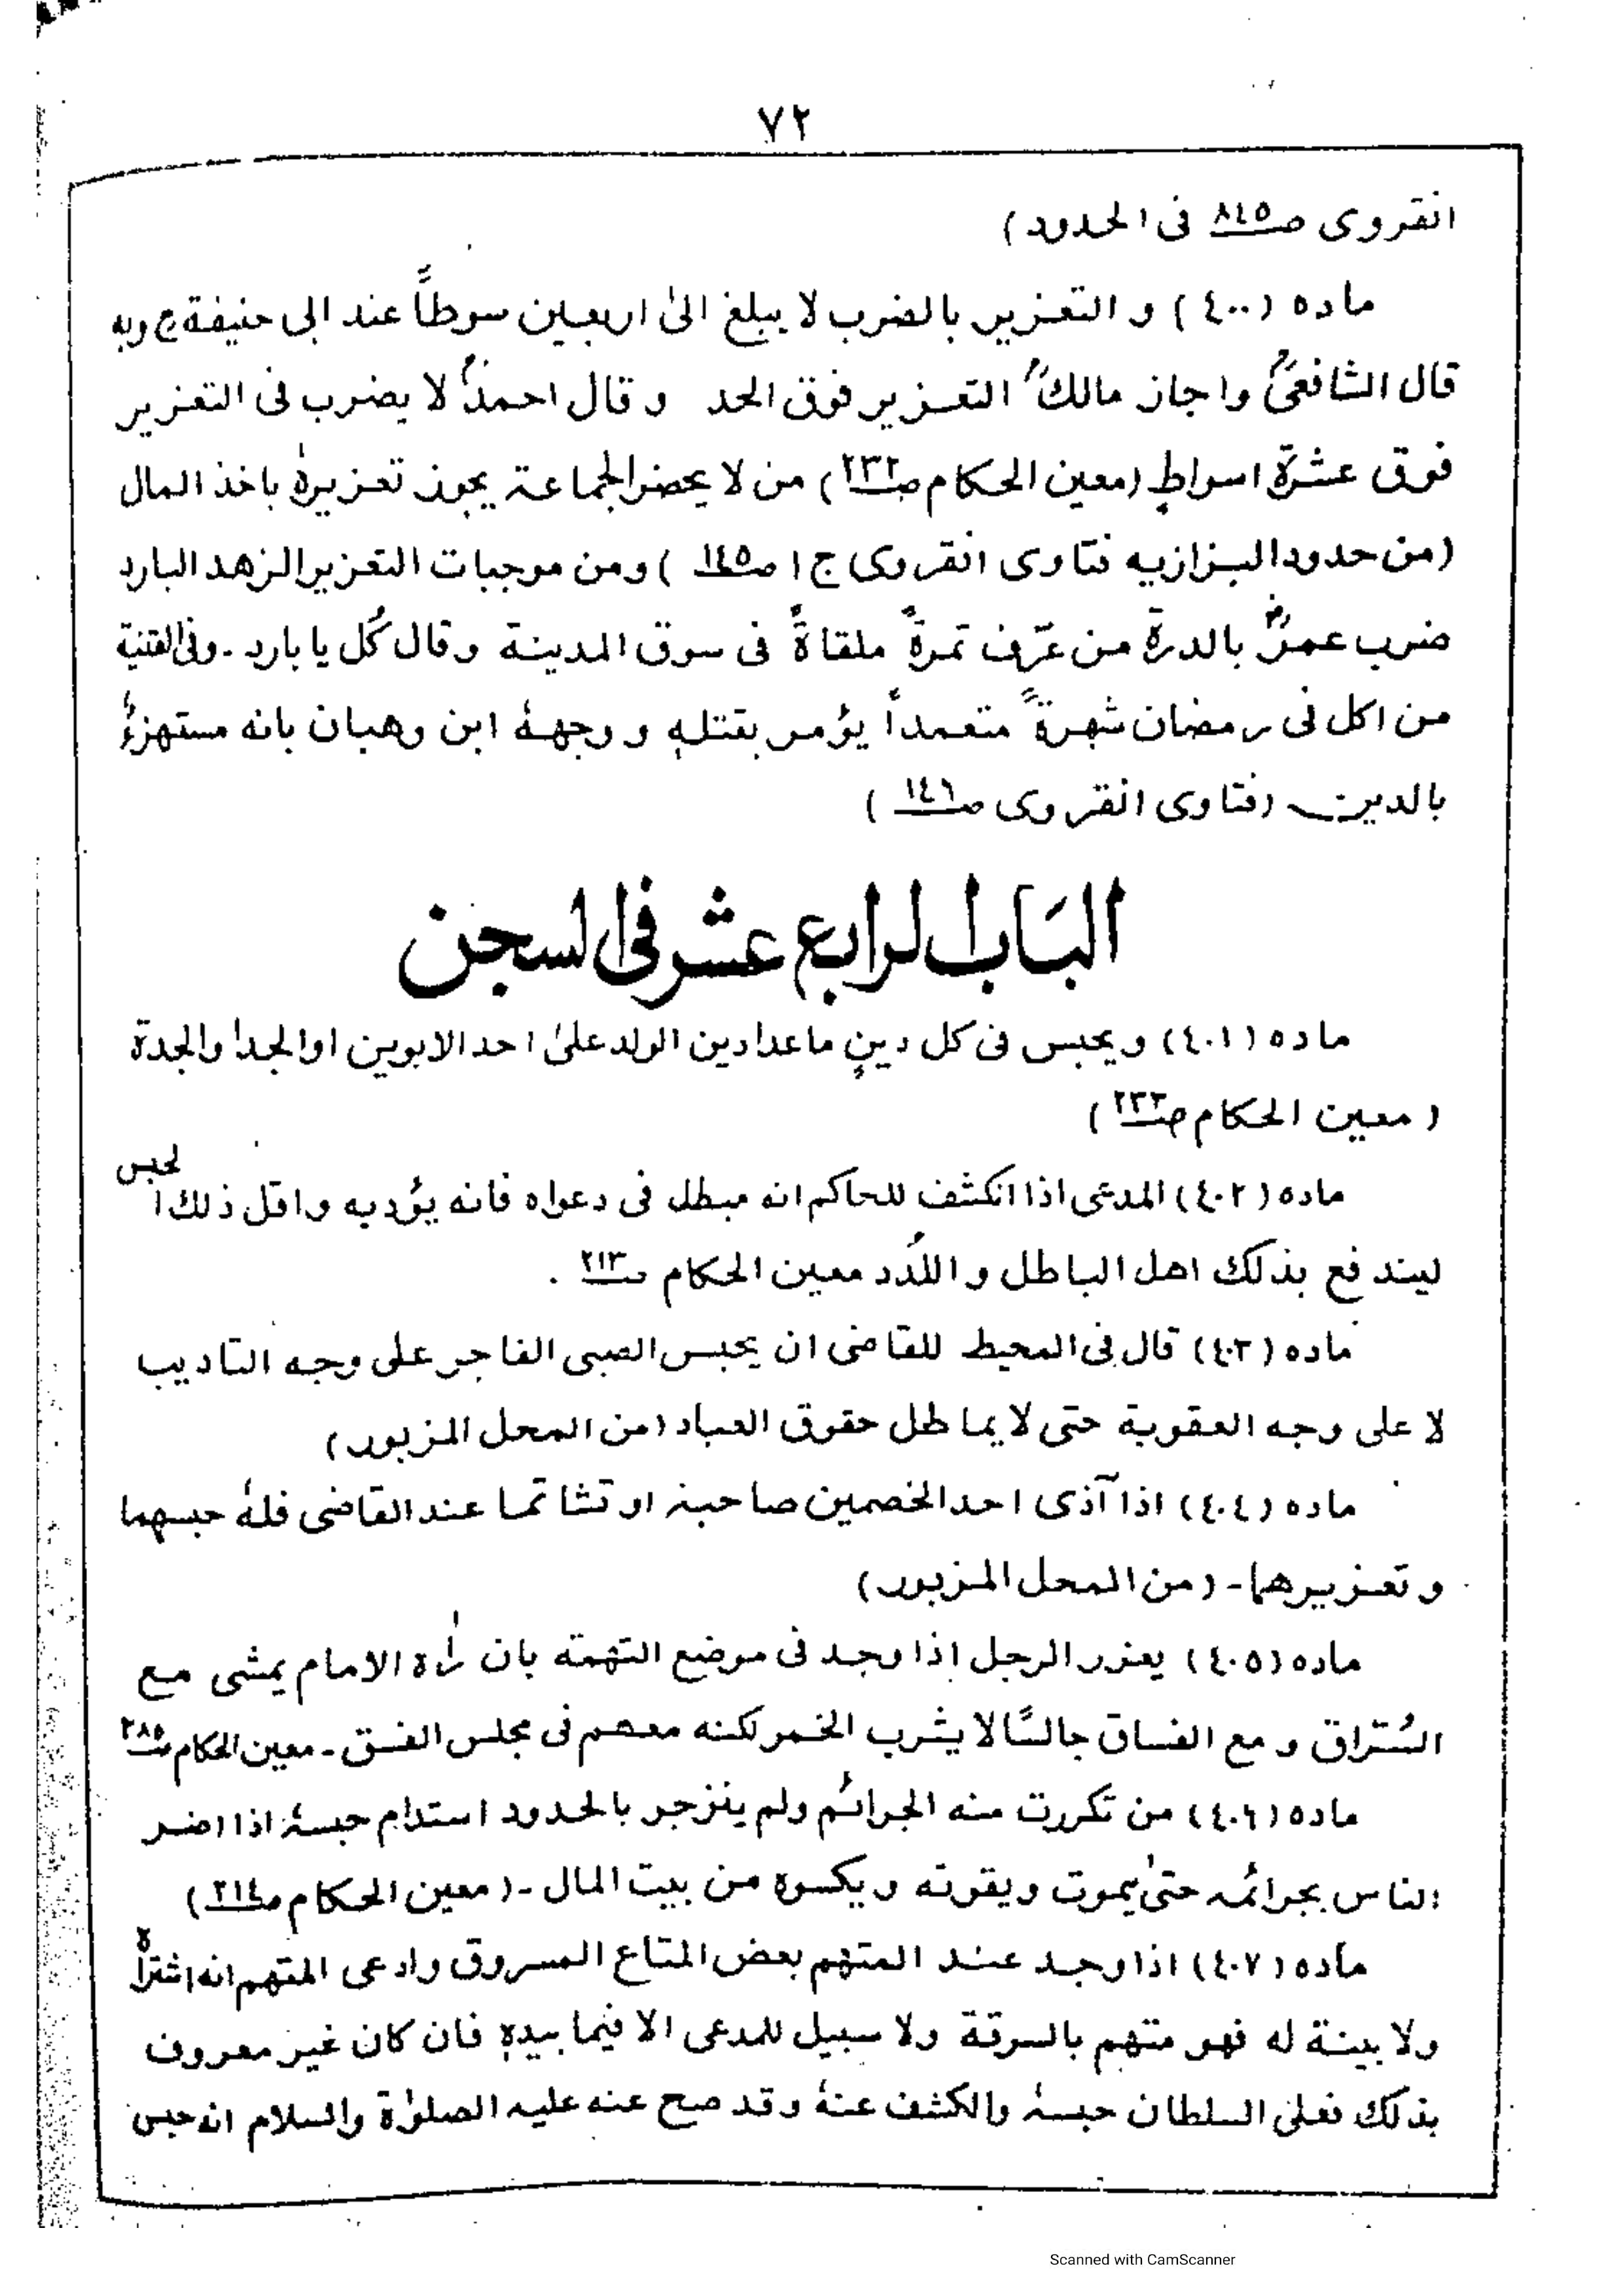 ٧٢
انقروى صـ٨٤٥ فى الحدود)
ماده (٤٠٠) و التعزير بالضرب لا يبلغ الىٰ اربعين سوطاً عند ابى حنيفة ح وبه
قال الشافعىؒ واجاز مالكؒ التعزير فوق الحد و قال احمدؒ لا يضرب فى التعزير
فوق عشرة اسواطٍ (معين الحكام صـ٢٣٢) من لا يحضر الجماعة يجوز تعزيرهٗ باخذ المال
(من حدود البزازيه فتاوى انقروى ج ا صـ١٤٥) ومن موجبات التعزير الزهد البارد
ضرب عمرؓ بالدرة من عرّف تمرةً ملقاةً فى سوق المدينة وقال كُل يا بارد ـ وفى القنية
من اكل فى رمضان شهرةً متعمداً يؤمر بقتلهٖ و وجههٗ ابن وهبان بانه مستهزءٌ
بالدين (فتاوى انقروى صـ١٤٦)
الباب الرابع عشر فى السجن
ماده (٤٠١) ويحبس فى كل دينٍ ماعدا دين الولد علىٰ احد الابوين اوالجد او الجدة
(معين الحكام صـ٢٣٣)
ماده (٤٠٢) المدعى اذا انكشف للحاكم انه مبطل فى دعواه فانه يؤدبه واقل ذلك الحبس
ليندفع بذلك اهل الباطل و اللَدد معين الحكام صـ٢١٣ .
ماده (٤٠٣) قال فى المحيط للقاضى ان يحبس الصبى الفاجر على وجه التاديب
لا على وجه العقوبة حتى لا يماطل حقوق العباد (من المحل المزبور)
ماده (٤٠٤) اذا آذى احد الخصمين صاحبه او تشاتما عند القاضى فلهٗ حبسهما
و تعزيرهما ـ (من المحل المزبور)
ماده (٤٠٥) يعزر الرجل اذا وجد فى موضع التهمة بان رأه الامام يمشى مع
السُرّاق و مع الفساق جالسًا لا يشرب الخمر لكنه معهم فى مجلس الفسق ـ معين الحكام صـ٢٨٥
ماده (٤٠٦) من تكررت منه الجرائم ولم ينزجر بالحدود استدام حبسهٗ اذا اضر
الناس بجرائمه حتىٰ يموت ويقوته ويكسوه من بيت المال ـ (معين الحكام صـ٢١٤)
ماده (٤٠٧) اذا وجد عند المتهم بعض المتاع المسروق وادعى المتهم انه اشتراهٗ
ولا بينة له فهو متهم بالسرقة ولا سبيل للمدعى الا فيما بيدهٖ فان كان غير معروف
بذلك فعلى السلطان حبسهٗ والكشف عنهٗ وقد صح عنه عليه الصلوٰة والسلام انه حبس
Scanned with CamScanner